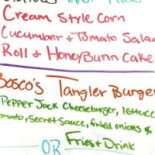 Cream Style Corn
Cucumber & Tomato Salad
Roll & HoneyBunn Cake
Bosco's Tangler Burger
Pepper Jack Cheeseburger, lettuce
tomato, secret sauce, fried onions &
OR Fries & Drink